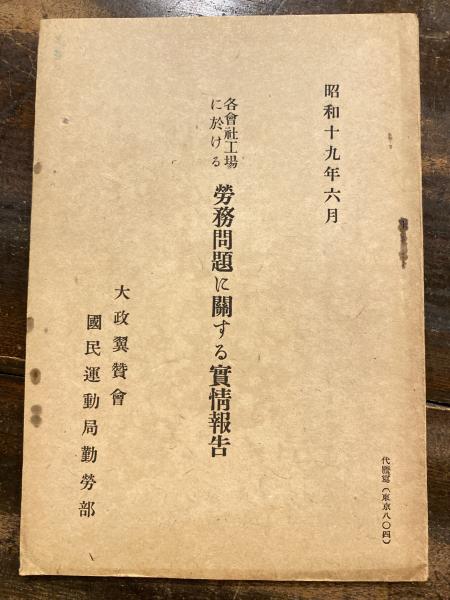 昭和十九年六月
各會社工場
に於ける
勞務問題に關する實情報告
大政翼贊會
國民運動局勤勞部
代謄寫(東京八〇四)